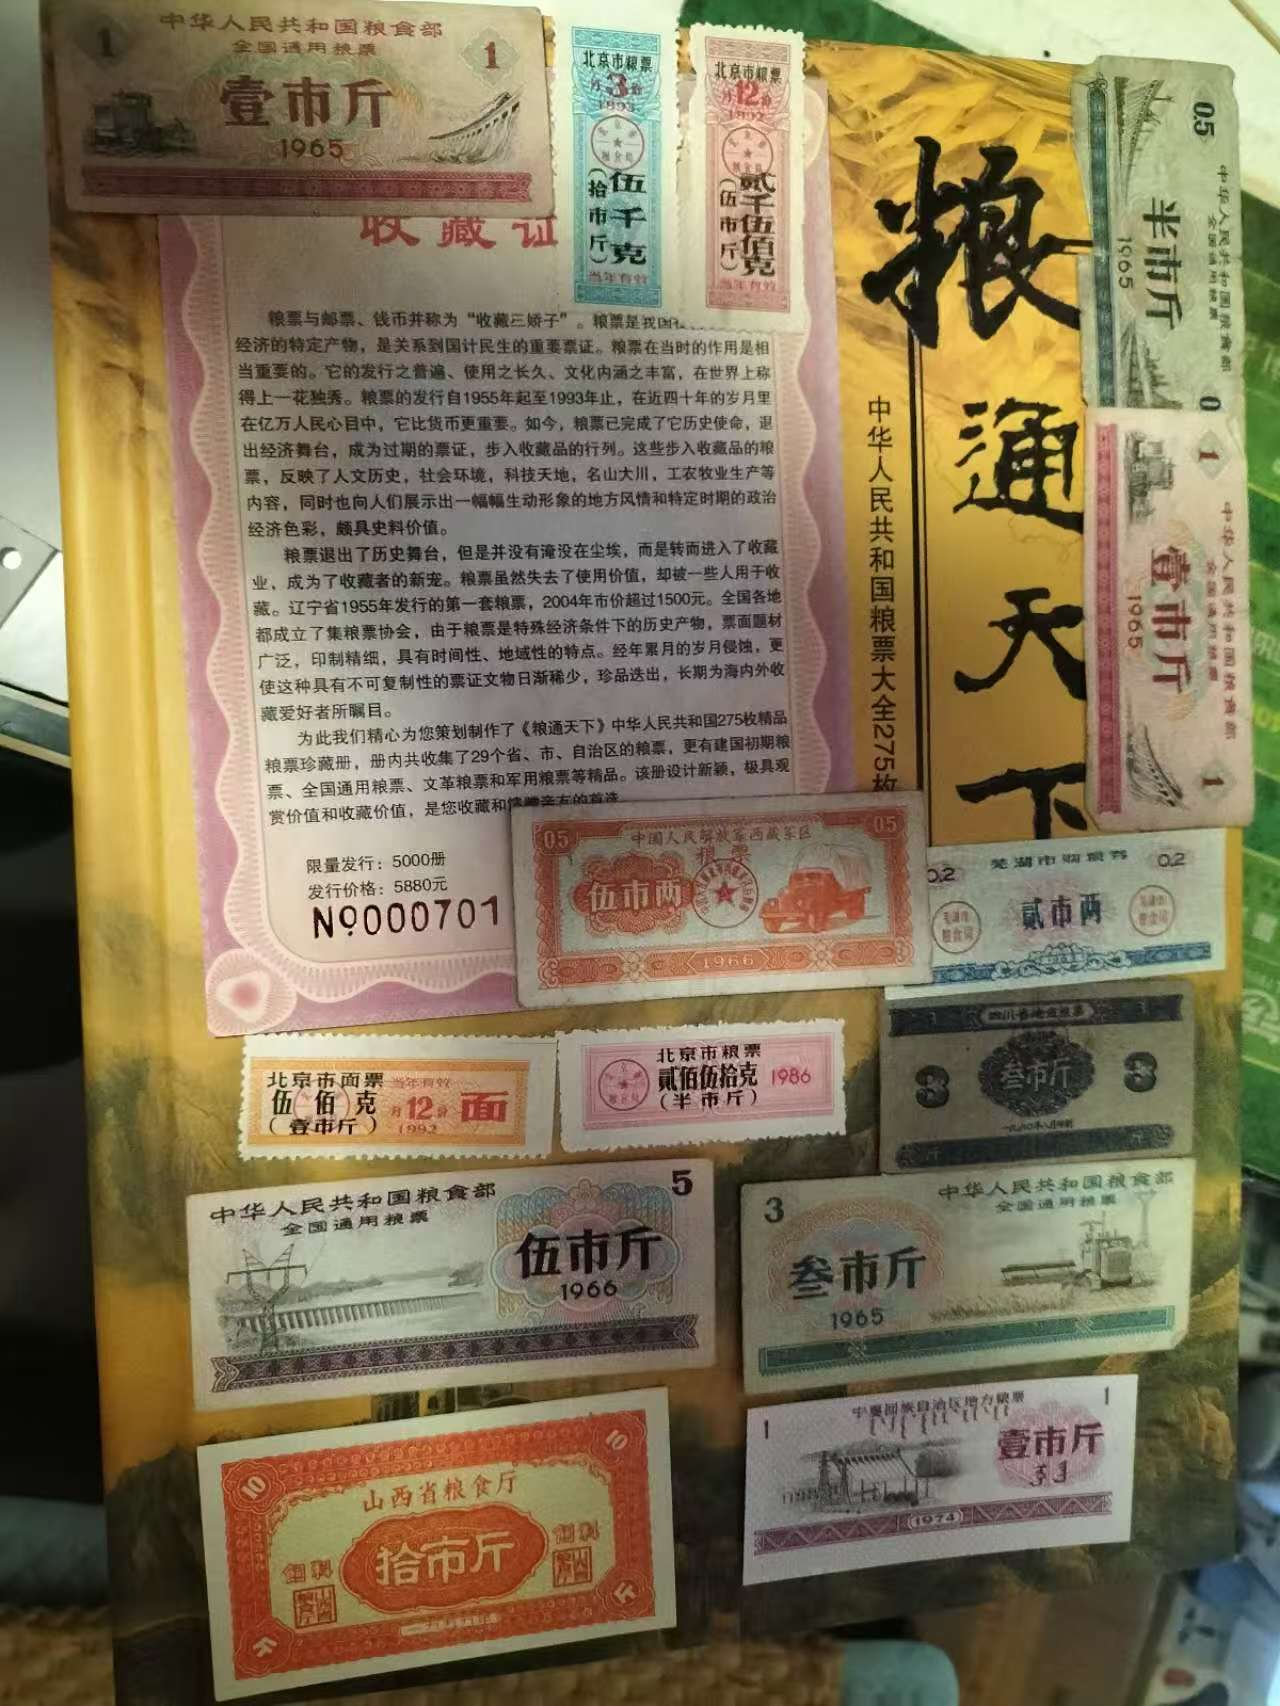 中华人民共和国粮食部
全国通用粮票
1
1
壹市斤
1965
北京市粮票
月3份
1993
伍千克
(拾市斤)
当年有效
北京市粮票
月12份
1992
贰千伍佰克
(伍市斤)
当年有效
收藏证
粮票与邮票、钱币并称为“收藏三娇子”。粮票是我国
经济的特定产物，是关系到国计民生的重要票证。粮票在当时的作用是相
当重要的。它的发行之普遍、使用之长久、文化内涵之丰富，在世界上称
得上一花独秀。粮票的发行自1955年起至1993年止，在近四十年的岁月里
在亿万人民心目中，它比货币更重要。如今，粮票已完成了它历史使命，退
出经济舞台，成为过期的票证，步入收藏品的行列。这些步入收藏品的粮
票，反映了人文历史，社会环境，科技天地，名山大川，工农牧业生产等
内容，同时也向人们展示出一幅幅生动形象的地方风情和特定时期的政治
经济色彩，颇具史料价值。
粮票退出了历史舞台，但是并没有淹没在尘埃，而是转而进入了收藏
业，成为了收藏者的新宠。粮票虽然失去了使用价值，却被一些人用于收
藏。辽宁省1955年发行的第一套粮票，2004年市价超过1500元。全国各地
都成立了集粮票协会，由于粮票是特殊经济条件下的历史产物，票面题材
广泛，印制精细，具有时间性、地域性的特点。经年累月的岁月侵蚀，更
使这种具有不可复制性的票证文物日渐稀少，珍品迭出，长期为海内外收
藏爱好者所瞩目。
为此我们精心为您策划制作了《粮通天下》中华人民共和国275枚精品
粮票珍藏册，册内共收集了29个省、市、自治区的粮票，更有建国初期粮
票、全国通用粮票、文革粮票和军用粮票等精品。该册设计新颖，极具观
赏价值和收藏价值，是您收藏和
限量发行：5000册
发行价格：5880元
Nº000701
粮通天下
中华人民共和国粮票大全275枚
0.5
中华人民共和国粮食部
全国通用粮票
半市斤
1965
1
中华人民共和国粮食部
全国通用粮票
壹市斤
1965
1
05
中国人民解放军西藏军区
05
粮票
伍市两
1966
0.2
芜湖市购粮券
0.2
贰市两
北京市面票
当年有效
伍佰克
(壹市斤)
月12份
1992
面
北京市粮票
贰佰伍拾克
(半市斤)
1986
四川省地方粮票
3
叁市斤
3
中华人民共和国粮食部
全国通用粮票
5
伍市斤
1966
3
中华人民共和国粮食部
全国通用粮票
叁市斤
1965
10
10
山西省粮食厅
拾市斤
1
宁夏回族自治区地方粮票
1
壹市斤
1974